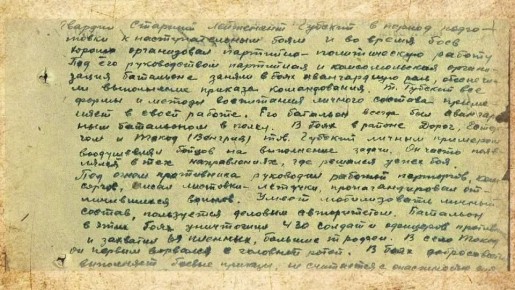 Гвардии Старший лейтенант Губский в период подго-
товки к наступательным боям и во время боев
хорошо организовал партийно-политическую работу
Под его руководством партийная и комсомольская органи-
зация батальона заняли в боях авангардную роль, обеспечи-
ли выполнение приказа командования. Т. Губский все
формы и методы воспитания личного состава приме-
няет в своей работе. Его батальон всегда был авангард-
ным батальоном в полку. В боях в районе Дорог,
и Токод (Венгрия) тов. Губский личным примером
воодушевлял бойцов на выполнение задач. Он часто появ-
лялся в тех направлениях, где решался успех боя.
Под огнем противника руководил работой парторгов, ком-
соргов, писал листовки-летучки, пропагандировал от-
личившихся воинов. Умеет мобилизовать личный
состав, пользуется деловым авторитетом. Батальон
в этих боях уничтожил 430 солдат и офицеров против
и захватил 69 пленных, большие трофеи. В село Токод
он первым ворвался с головной ротой. В боях добросовест
выполняет боевые приказы, не считается с опасностью для